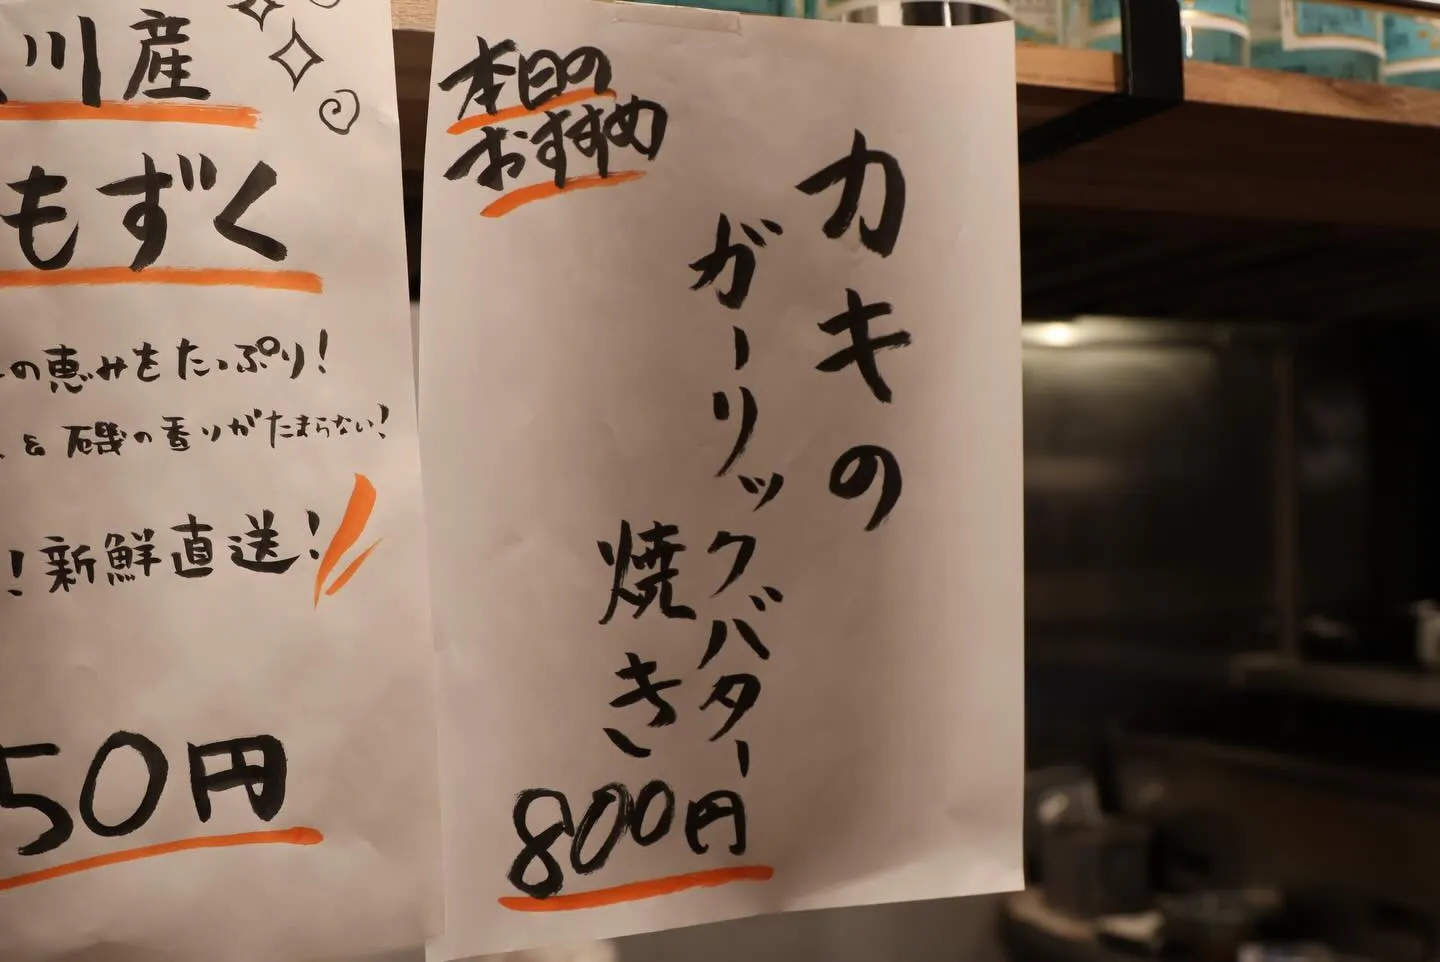 川産
もずく
の恵みをたっぷり!
& 磯の香りがたまらない!
!新鮮直送!
50円
本日の
おすすめ
カキの
ガーリックバター
焼き
800円